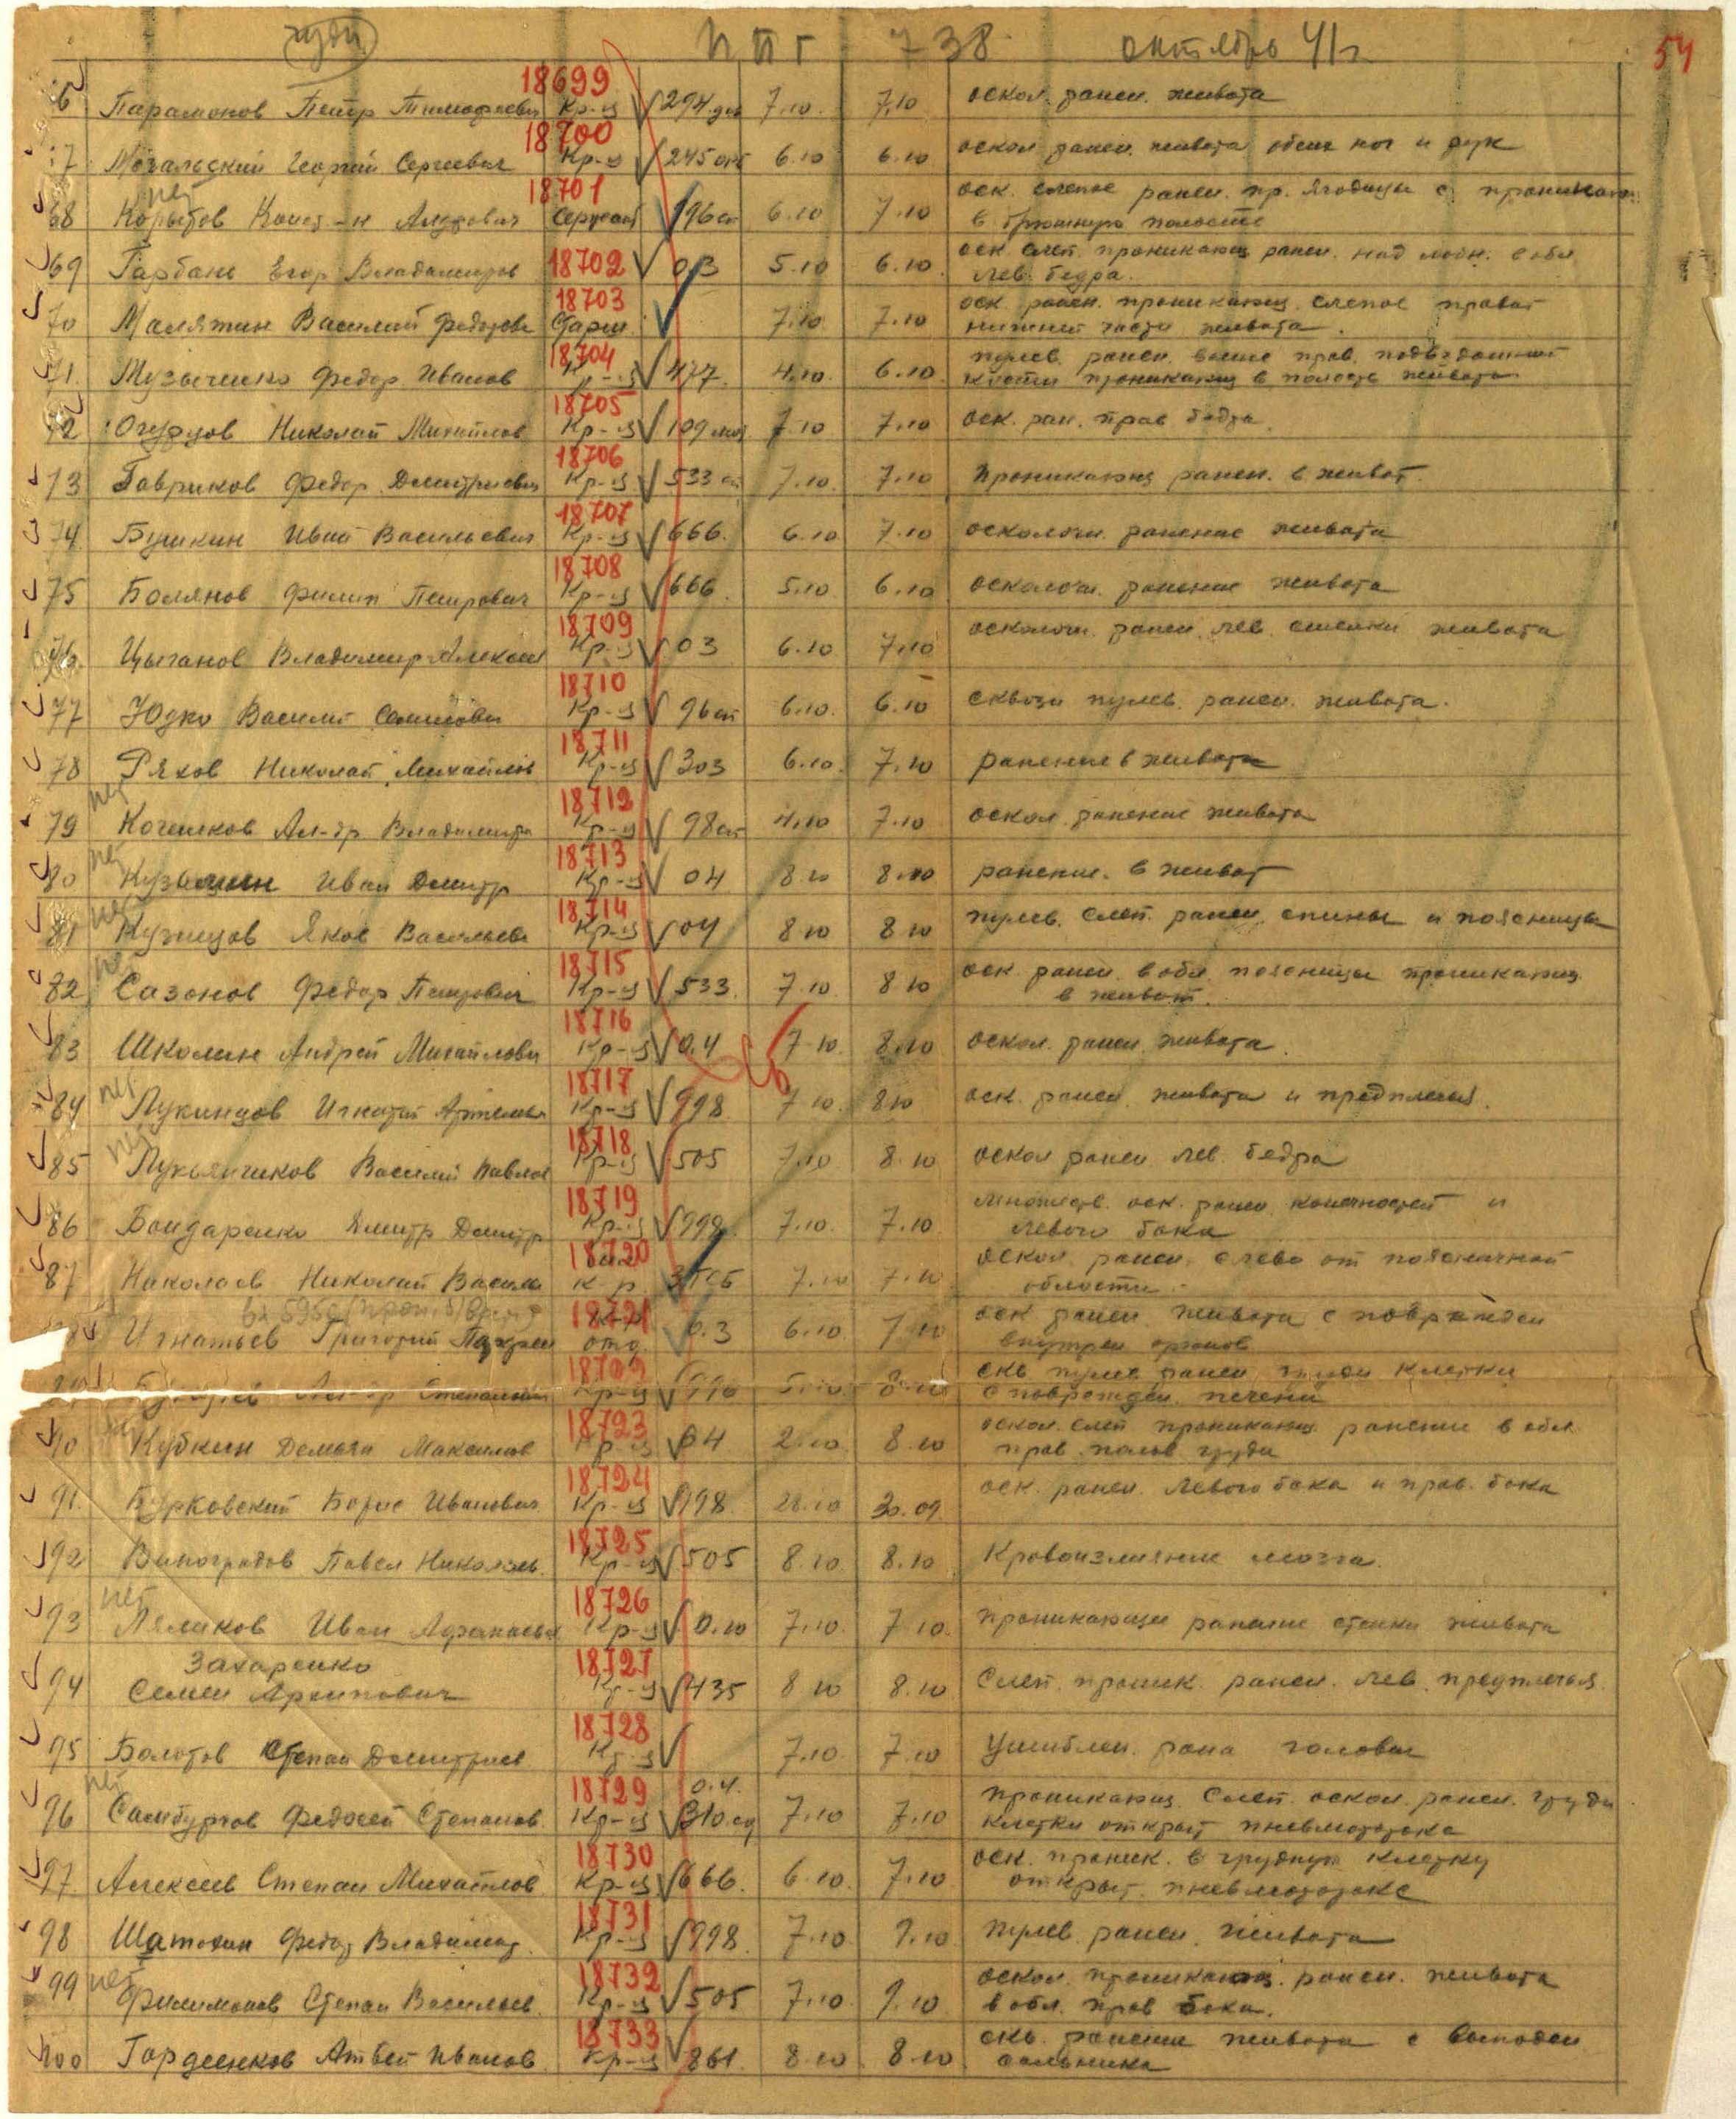 ППГ 738 октябрь 41 г 54
18699
6 Парамонов Петр Тимофеевич Кр-ц 294 7.10. 7.10 оскол. ранен. живота
18700
7 Георгий Сергеевич Кр-ц 245 6.10 6.10 оскол. ранен. живота обеих ног и рук
нет 18701 оск. слепое ранен. пр. ягодицы с проникающ.
68 Корытов Конст-н Сержант 96 6.10 7.10 в брюшную полость
оск. слеп. проникающ ранен. над лобн. в обл
69 Гарбань Егор Владимиров 18702 03 5.10 6.10. лев. бедра.
18703 оск. ранен. проникающ. слепое правой
70 Малятин Василий Федорови 7.10 7.10 нижней части живота.
18704 пулев. ранен. выше прав. подвздошной
71. Музыченко Федор Иванов Кр-ц 477. 4.10. 6.10. кости проникающ в полость живота
18705
72 Огурцов Николай Михайлов Кр-ц 109 7.10 7.10 оск. ран. прав бедра.
18706
73 Гавриков Федор Дмитриевич Кр-ц 533 7.10. 7.10 проникающ ранен. в живот.
18707
74 Бушкин Иван Васильевич Кр-ц 666. 6.10 7.10 осколочн. ранение живота
18708
75 Болянов Филип Петрович Кр-ц 666. 5.10 6.10 осколочн. ранение живота
18709
76. Цыганов Владимир Алексеев Кр-ц 03 6.10 7.10 осколочн. ранен. лев. стенки живота
18710
77 Юдко Василий Кр-ц 96 6.10. 6.10 сквозн пулев. ранен. живота.
18711
78 Ряхов Николай Михайлов Кр-ц 303 6.10. 7.10 ранение в живота
нет 18712
79 Кочешков Ал-др Владимир Кр-ц 98 4.10 7.10 оскол. ранение живота
нет 18713
80 Кузьмин Иван Дмитр Кр-ц 04 8.10 8.10 ранение. в живот
нет 18714
81 Кузнецов Яков Васильев Кр-ц 04 8.10 8.10 пулев. слеп. ранен. спины и поясницы
нет 18715
82 Сазонов Федор Петрович Кр-ц 533. 7.10. 8.10 оск. ранен. в обл. поясницы проникающ.
в живот.
18716
83 Школин Андрей Михайлови Кр-ц 0.4 7.10. 8.10 оскол. ранен. живота.
нет 18717
84 Лукинцов Игнатий Артемьев Кр-ц 998. 7.10. 8.10 оск. ранен. живота и предплечья.
нет 18718
85 Лукьянчиков Василий Павлов Кр-ц 505 7.10 8.10 оскол ранен. лев. бедра
18719 множеств. оск. ранен. конечностей и
86 Бондаренко Дмитр Дмитр Кр-ц 998. 7.10. 7.10 левого бока
18720 оскол. ранен. слева от поясничной
87 Николаев Николай Василь 7.10 7.10 области.
18721 оск ранен. живота с поврежден
88 Игнатьев Григорий отд. 0.3 6.10 7.10 внутрен органов
скв. пулев ранен груди клетки
Ал-др Степанович Кр-ц с поврежден. печени
18723 оскол. слеп проникающ. ранение в обл
90 Кубкин Демьян Максимов Кр-ц 04. 2.10. 8.10 прав. полов. груди
18724
91. Бурковский Борис Иванович Кр-ц 998. 28.10 30.09 оск. ранен. левого бока и прав. бока
18725
92 Виноградов Павел Николаев. Кр-ц 505 8.10 8.10 Кровоизлияние мозга.
нет 18726
93 Ляликов Иван Афанасьев Кр-ц 0.10 7.10. 7.10. проникающее ранение стенки живота
Захаренко 18727
94 Семен Архипович Кр-ц 435 8.10 8.10 Слеп. проник. ранен. лев. предплечья.
18728
95 Болотов Степан Дмитриев Кр-ц 7.10. 7.10 Ушиблен. рана головы
нет 18729 0.4. проникающ. слеп. оскол. ранен. груди
96 Самбурзов Федосей Степанов. Кр-ц 310 7.10 7.10 клетки открыт пневмоторокса
18730 оск. проник. в грудную клетку
97. Алексеев Степан Михайлов Кр-ц 666. 6.10. 7.10 открыт. пневмотороксе
18731
98 Шатохин Федор Владимир. Кр-ц 998. 7.10. 9.10 пулев. ранен. живота
нет 18732 оскол. проникающ. ранен. живота
99 Филимонов Степан Васильев. Кр-ц 505 7.10. 9.10. в обл. прав бока.
18733 скв. ранение живота с выпаден
100 Гордеенков Матвей Иванов Кр-ц 861. 8.10 8.10. сальника